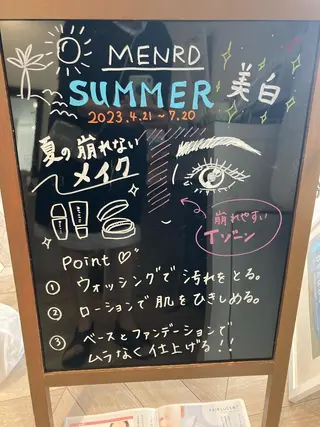 MENRD
SUMMER 美白
2023.4.21~7.20
夏の崩れない
メイク
崩れやすい
Tゾーン
Point♡
① ウォッシングで汚れをとる。
② ローションで肌をひきしめる。
③ ベースとファンデーションで
ムラなく仕上げる!!